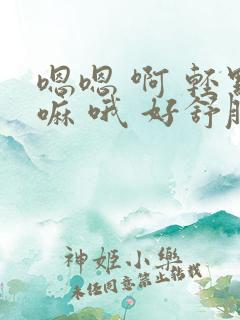 嗯嗯 啊 輕
嘛 哦 好舒
神姬小樂
未经同意禁止转载